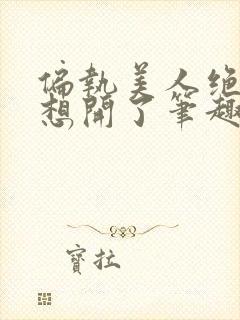 偏執美人绝
想開了筆趣
寶拉